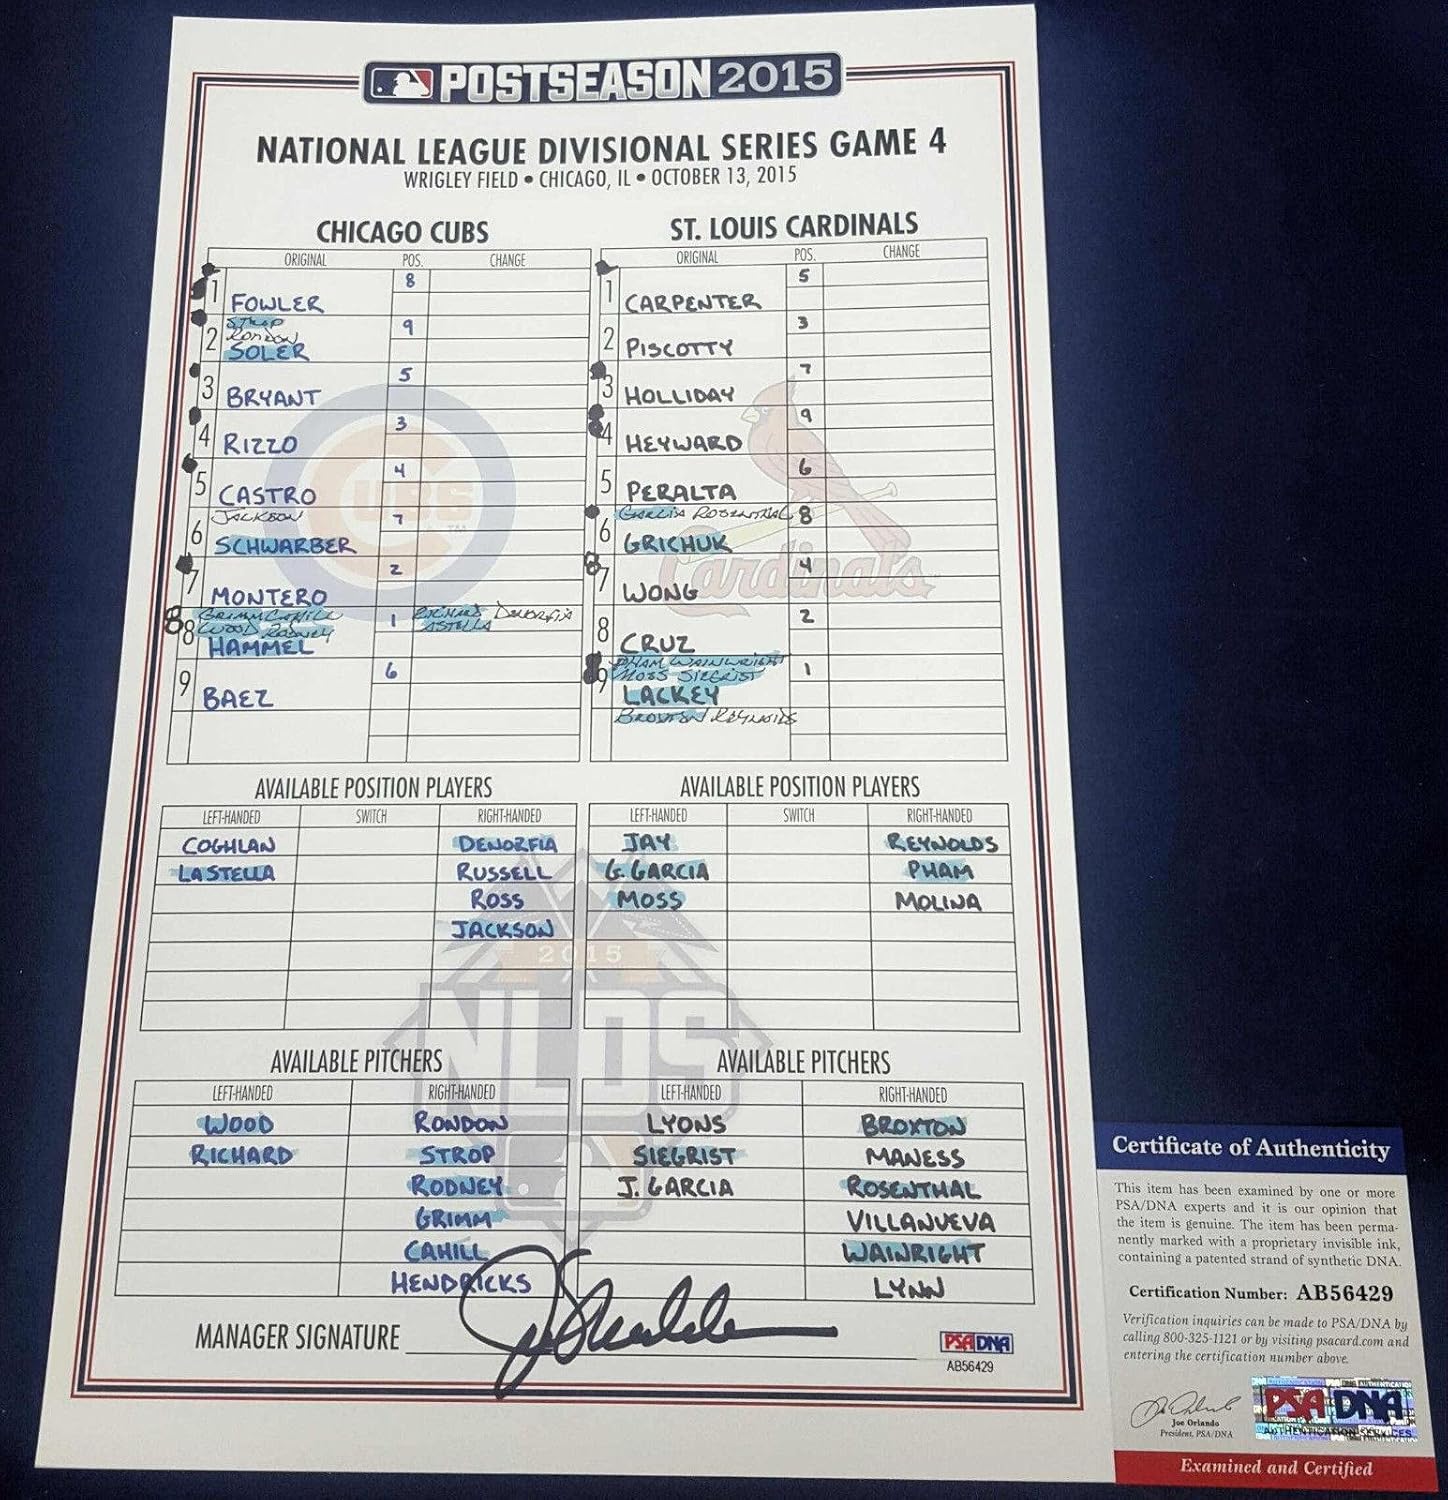 POSTSEASON 2015
NATIONAL LEAGUE DIVISIONAL SERIES GAME 4
WRIGLEY FIELD • CHICAGO, IL • OCTOBER 13, 2015
CHICAGO CUBS
ORIGINAL POS. CHANGE
1 FOWLER 8
STROP
RONDON
2 SOLER 9
3 BRYANT 5
4 RIZZO 3
5 CASTRO 4
JACKSON
6 SCHWARBER 7
7 MONTERO 2
GRIMM CAHILL RICHARD DENORFIA
WOOD RODNEY LASTELLA
8 HAMMEL 1
9 BAEZ 6
ST. LOUIS CARDINALS
ORIGINAL POS. CHANGE
1 CARPENTER 5
2 PISCOTTY 3
3 HOLLIDAY 7
4 HEYWARD 9
5 PERALTA 6
GARCIA ROSENTHAL
6 GRICHUK 8
7 WONG 4
8 CRUZ 2
PHAM WAINWRIGHT
MOSS SIEGRIST
9 LACKEY 1
BROXTON REYNOLDS
CUBS
Cardinals
AVAILABLE POSITION PLAYERS
LEFT-HANDED SWITCH RIGHT-HANDED
COGHLAN DENORFIA
LASTELLA RUSSELL
ROSS
JACKSON
AVAILABLE POSITION PLAYERS
LEFT-HANDED SWITCH RIGHT-HANDED
JAY REYNOLDS
G. GARCIA PHAM
MOSS MOLINA
2015
NLDS
AVAILABLE PITCHERS
LEFT-HANDED RIGHT-HANDED
WOOD RONDON
RICHARD STROP
RODNEY
GRIMM
CAHILL
HENDRICKS
AVAILABLE PITCHERS
LEFT-HANDED RIGHT-HANDED
LYONS BROXTON
SIEGRIST MANESS
J. GARCIA ROSENTHAL
VILLANUEVA
WAINRIGHT
LYNN
MANAGER SIGNATURE
PSA DNA
AB56429
Certificate of Authenticity
This item has been examined by one or more
PSA/DNA experts and it is our opinion that
the item is genuine. The item has been perma-
nently marked with a proprietary invisible ink,
containing a patented strand of synthetic DNA.
Certification Number: AB56429
Verification inquiries can be made to PSA/DNA by
calling 800-325-1121 or by visiting psacard.com and
entering the certification number above.
Joe Orlando
President, PSA/DNA
PSA DNA
AUTHENTICATION SERVICES
Examined and Certified